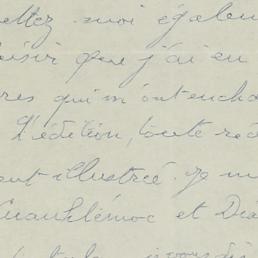 moi égalem
plaisir que j'ai eu
res qui m'ont encha
L'édition, toute ré
ent illustrée. Je m
Cuauhtémoc et Di